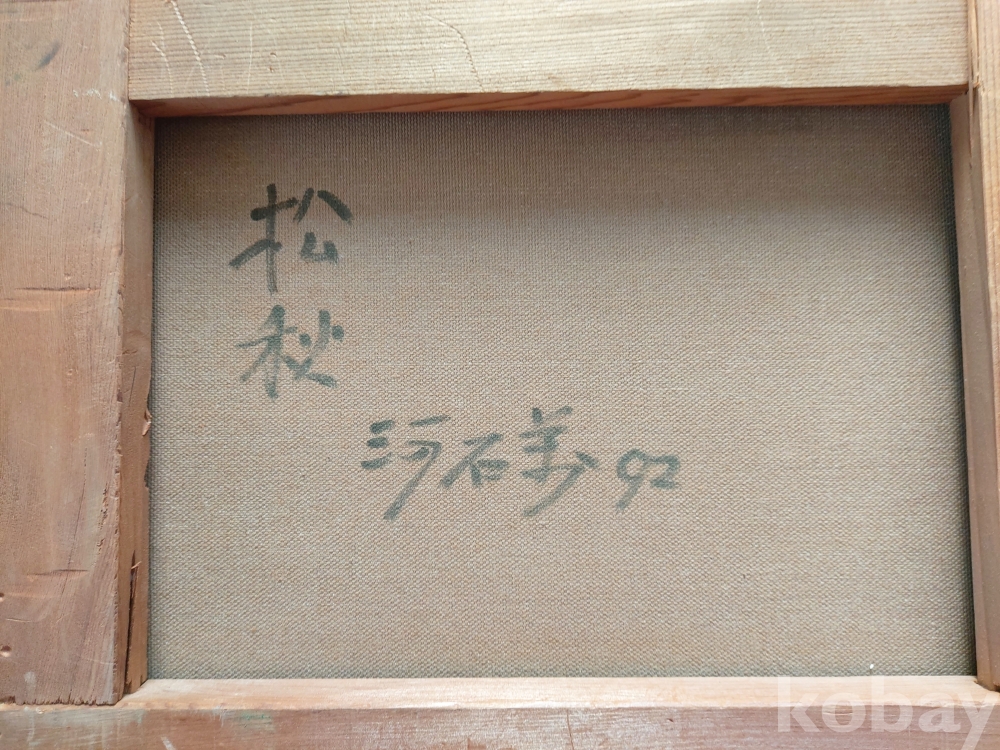 松
秋
河石 92
kobay